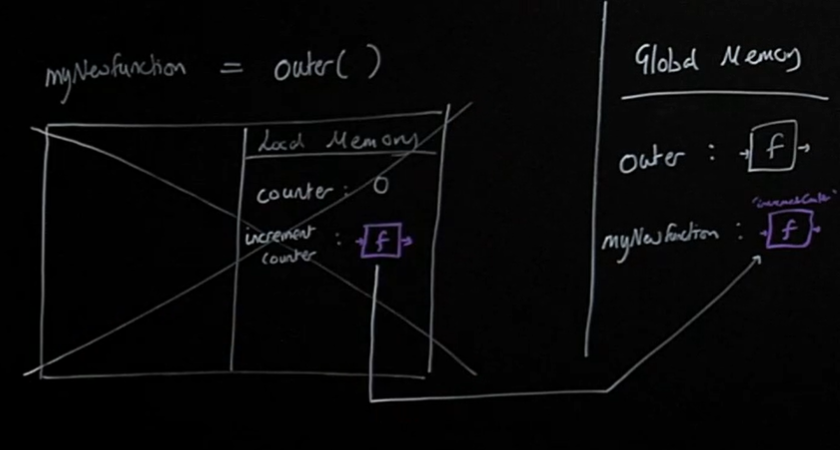 myNewFunction = outer( )
Local Memory
counter : 0
increment
counter : f
Global Memory
outer : f
"incrementCounter"
myNewFunction : f